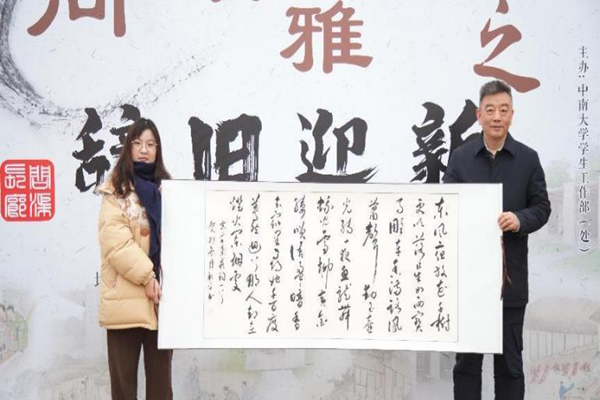 雅
之
辞旧迎新
问渠
长廊
主办：中南大学学生工作部（处）
东风夜放花千树
更吹落星如雨宝
马雕车香满路凤
箫声动玉壶
光转一夜鱼龙舞
蛾儿雪柳黄金
缕笑语盈盈暗香
去众里寻他千百度
蓦然回首那人却在
灯火阑珊处